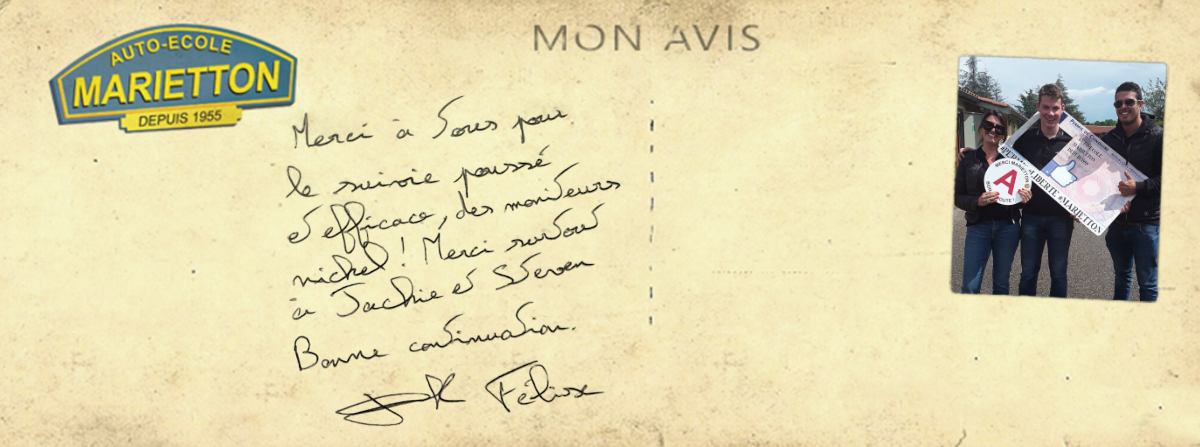 AUTO-ECOLE
MARIETTON
DEPUIS 1955
MON AVIS
Merci à Tous pour
le suivie poussé
et efficace, des moniteurs
nickel ! Merci surtout
à Jackie et Steven
Bonne continuation.
Félix
MERCI MARIETTON
A
LIBERTE #MARIETTON